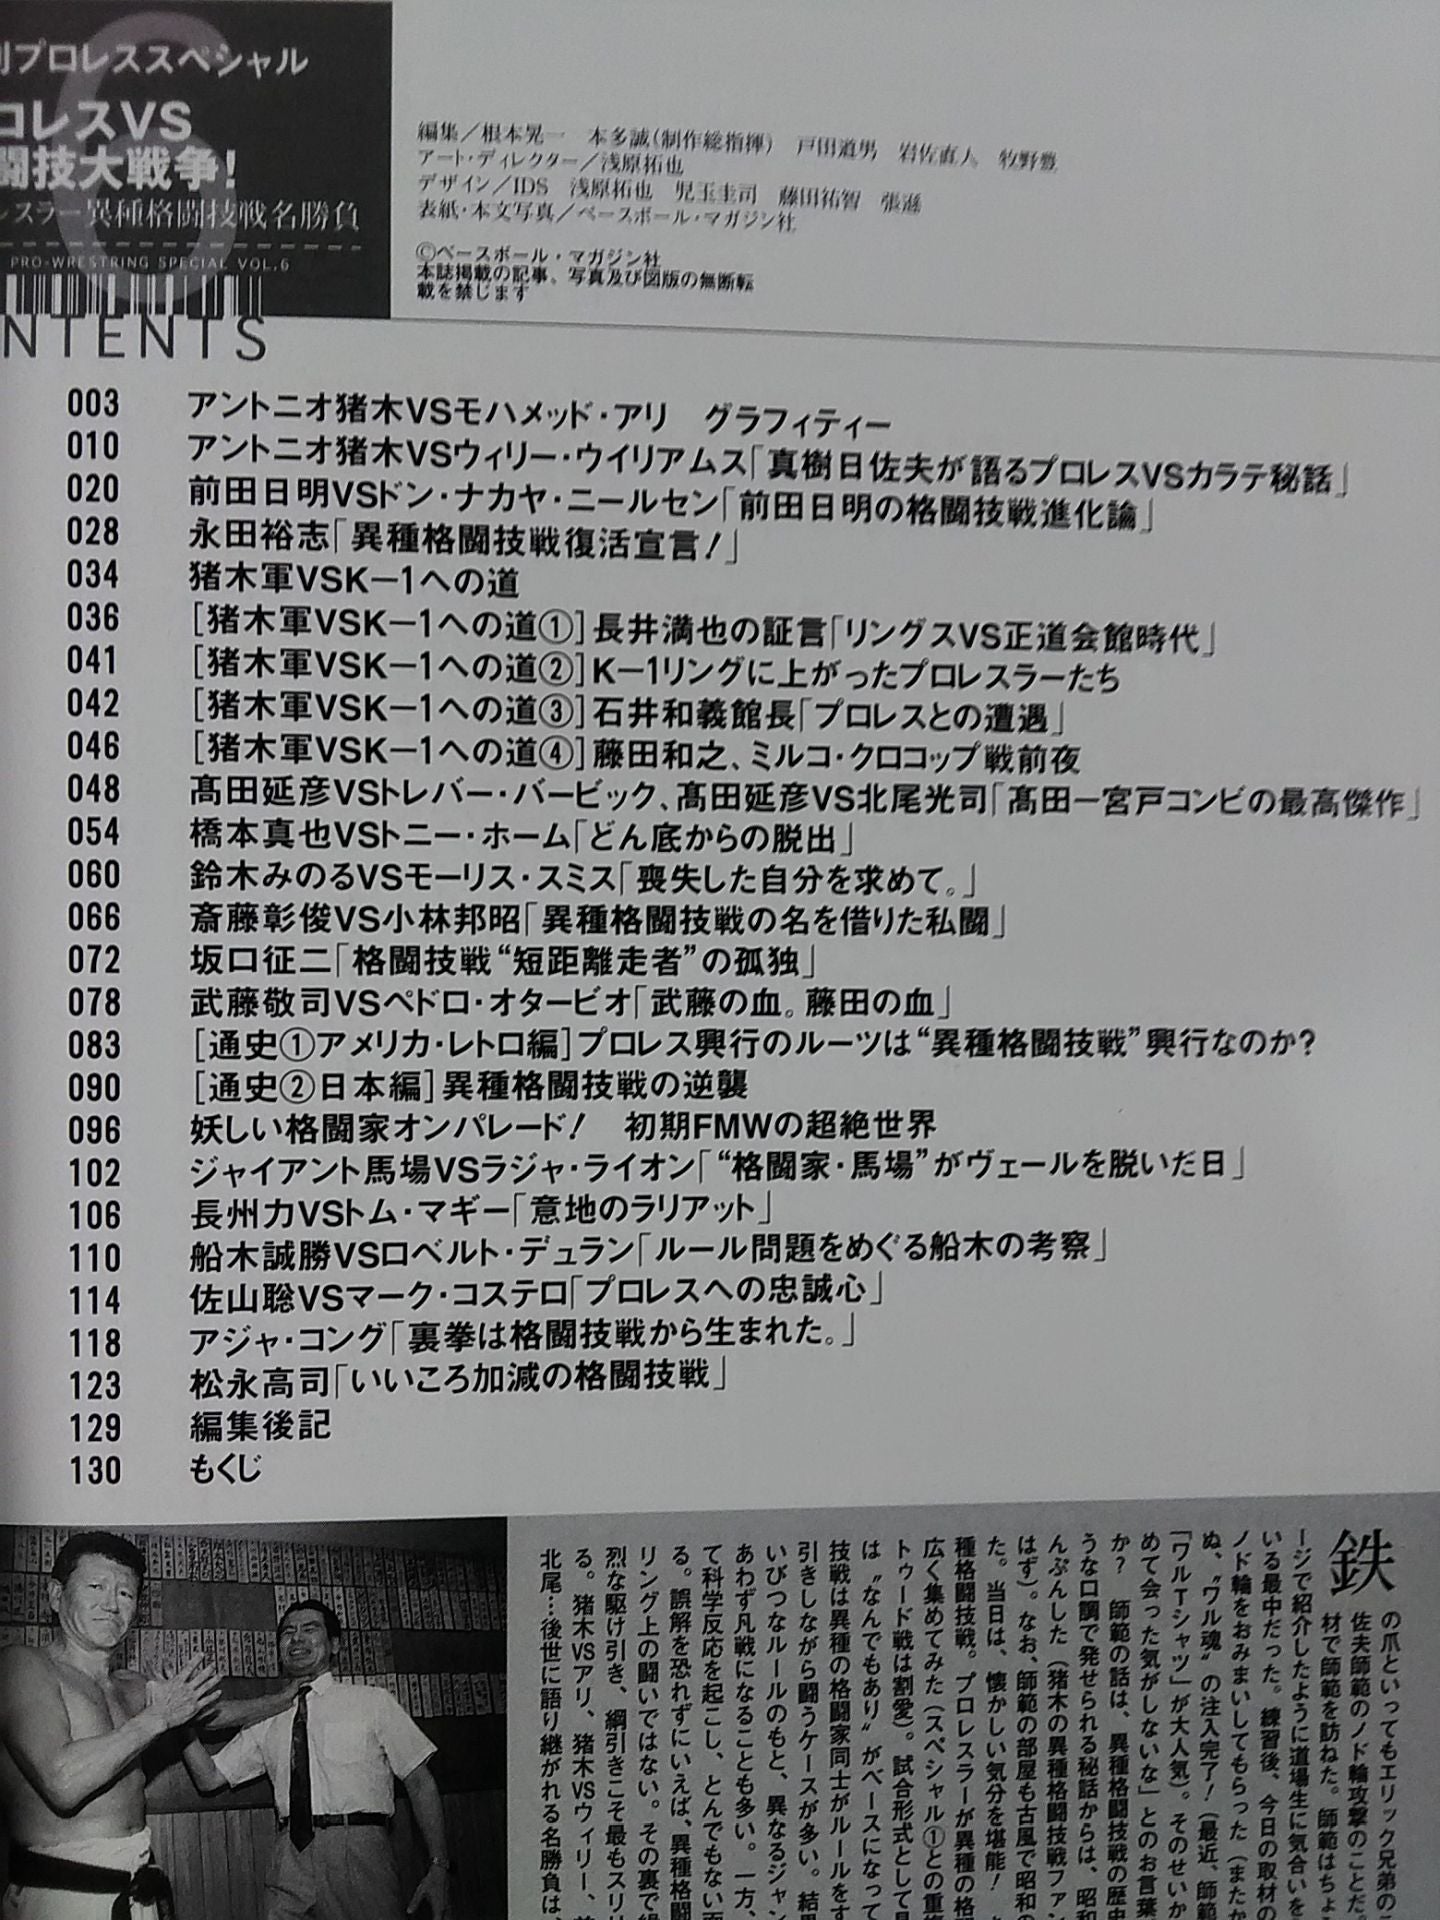 プロレススペシャル
コレスVS
闘技大戦争!
レスラー異種格闘技戦名勝負
PRO-WRESTRING SPECIAL VOL.6
編集/根本晃一　本多誠(制作総指揮)　戸田道男　岩佐直人　牧野豊
アート・ディレクター/浅原拓也
デザイン/IDS　浅原拓也　児玉圭司　藤田祐智　張遜
表紙・本文写真/ベースボール・マガジン社
©ベースボール・マガジン社
本誌掲載の記事、写真及び図版の無断転
載を禁じます
NTENTS
003 アントニオ猪木VSモハメッド・アリ　グラフィティー
010 アントニオ猪木VSウィリー・ウイリアムス「真樹日佐夫が語るプロレスVSカラテ秘話」
020 前田日明VSドン・ナカヤ・ニールセン「前田日明の格闘技戦進化論」
028 永田裕志「異種格闘技戦復活宣言!」
034 猪木軍VSK－1への道
036 [猪木軍VSK－1への道①]長井満也の証言「リングスVS正道会館時代」
041 [猪木軍VSK－1への道②]K－1リングに上がったプロレスラーたち
042 [猪木軍VSK－1への道③]石井和義館長「プロレスとの遭遇」
046 [猪木軍VSK－1への道④]藤田和之、ミルコ・クロコップ戦前夜
048 髙田延彦VSトレバー・バービック、髙田延彦VS北尾光司「髙田－宮戸コンビの最高傑作」
054 橋本真也VSトニー・ホーム「どん底からの脱出」
060 鈴木みのるVSモーリス・スミス「喪失した自分を求めて。」
066 斎藤彰俊VS小林邦昭「異種格闘技戦の名を借りた私闘」
072 坂口征二「格闘技戦“短距離走者”の孤独」
078 武藤敬司VSペドロ・オタービオ「武藤の血。藤田の血」
083 [通史①アメリカ・レトロ編]プロレス興行のルーツは“異種格闘技戦”興行なのか?
090 [通史②日本編]異種格闘技戦の逆襲
096 妖しい格闘家オンパレード!　初期FMWの超絶世界
102 ジャイアント馬場VSラジャ・ライオン「“格闘家・馬場”がヴェールを脱いだ日」
106 長州力VSトム・マギー「意地のラリアット」
110 船木誠勝VSロベルト・デュラン「ルール問題をめぐる船木の考察」
114 佐山聡VSマーク・コステロ「プロレスへの忠誠心」
118 アジャ・コング「裏拳は格闘技戦から生まれた。」
123 松永高司「いいころ加減の格闘技戦」
129 編集後記
130 もくじ
鉄
の爪といってもエリック兄弟の
佐夫師範のノド輪攻撃のことだ。
材で師範を訪ねた。師範はちょ
ージで紹介したように道場生に気合いを
いる最中だった。練習後、今日の取材の
ノド輪をおみまいしてもらった(またか
ぬ、“ワル魂”の注入完了!(最近、師範
「ワルTシャツ」が大人気)。そのせいか
めて会った気がしないな」とのお言葉
か?　師範の話は、異種格闘技戦の歴史
うな口調で発せられる秘話からは、昭和
んぷんした(猪木の異種格闘技戦ファン
はず)。なお、師範の部屋も古風で昭和の
た。当日は、懐かしい気分を堪能!
種格闘技戦。プロレスラーが異種の格
広く集めてみた(スペシャル①との重複
トゥード戦は割愛)。試合形式として見
は“なんでもあり”がベースになって
技戦は異種の格闘家同士がルールをす
引きしながら闘うケースが多い。結果
いびつなルールのもと、異なるジャン
あわず凡戦になることも多い。一方、
て科学反応を起こし、とんでもない面
る。誤解を恐れずにいえば、異種格闘
リング上の闘いではない。その裏で繰
烈な駆け引き、綱引きこそ最もスリリ
る。猪木VSアリ、猪木VSウィリー、前
北尾…後世に語り継がれる名勝負は、